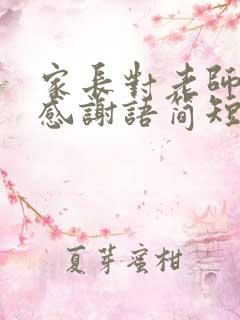 家長對老師
感謝語簡短
夏芽蜜柑